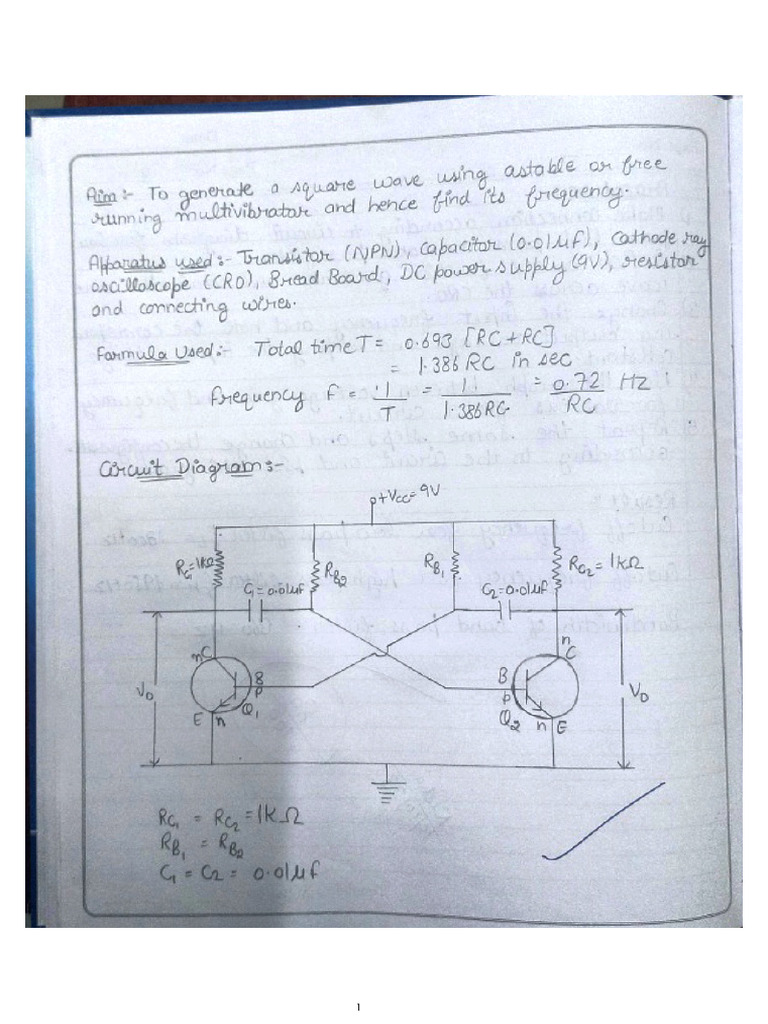 Aim:- To generate a square wave using astable or free
running multivibrator and hence find its frequency.
Apparatus used:- Transistor (NPN), capacitor (0.01μf), Cathode ray
oscilloscope (CRO), Bread Board, DC power supply (9V), resistor
and connecting wires.
Formula Used:- Total time T = 0.693 [RC + RC]
= 1.386 RC in sec
frequency F = 1/T = 1/1.386RC = 0.72/RC Hz
Circuit Diagram:-
+Vcc = 9V
RC1 = 1KΩ
RB2
RB1
RC2 = 1KΩ
C1 = 0.01μf
C2 = 0.01μf
n C
B
P
Q1
E n
n
C
B
P
Q2
n E
VO
VO
RC1 = RC2 = 1KΩ
RB1 = RB2
C1 = C2 = 0.01μf
1